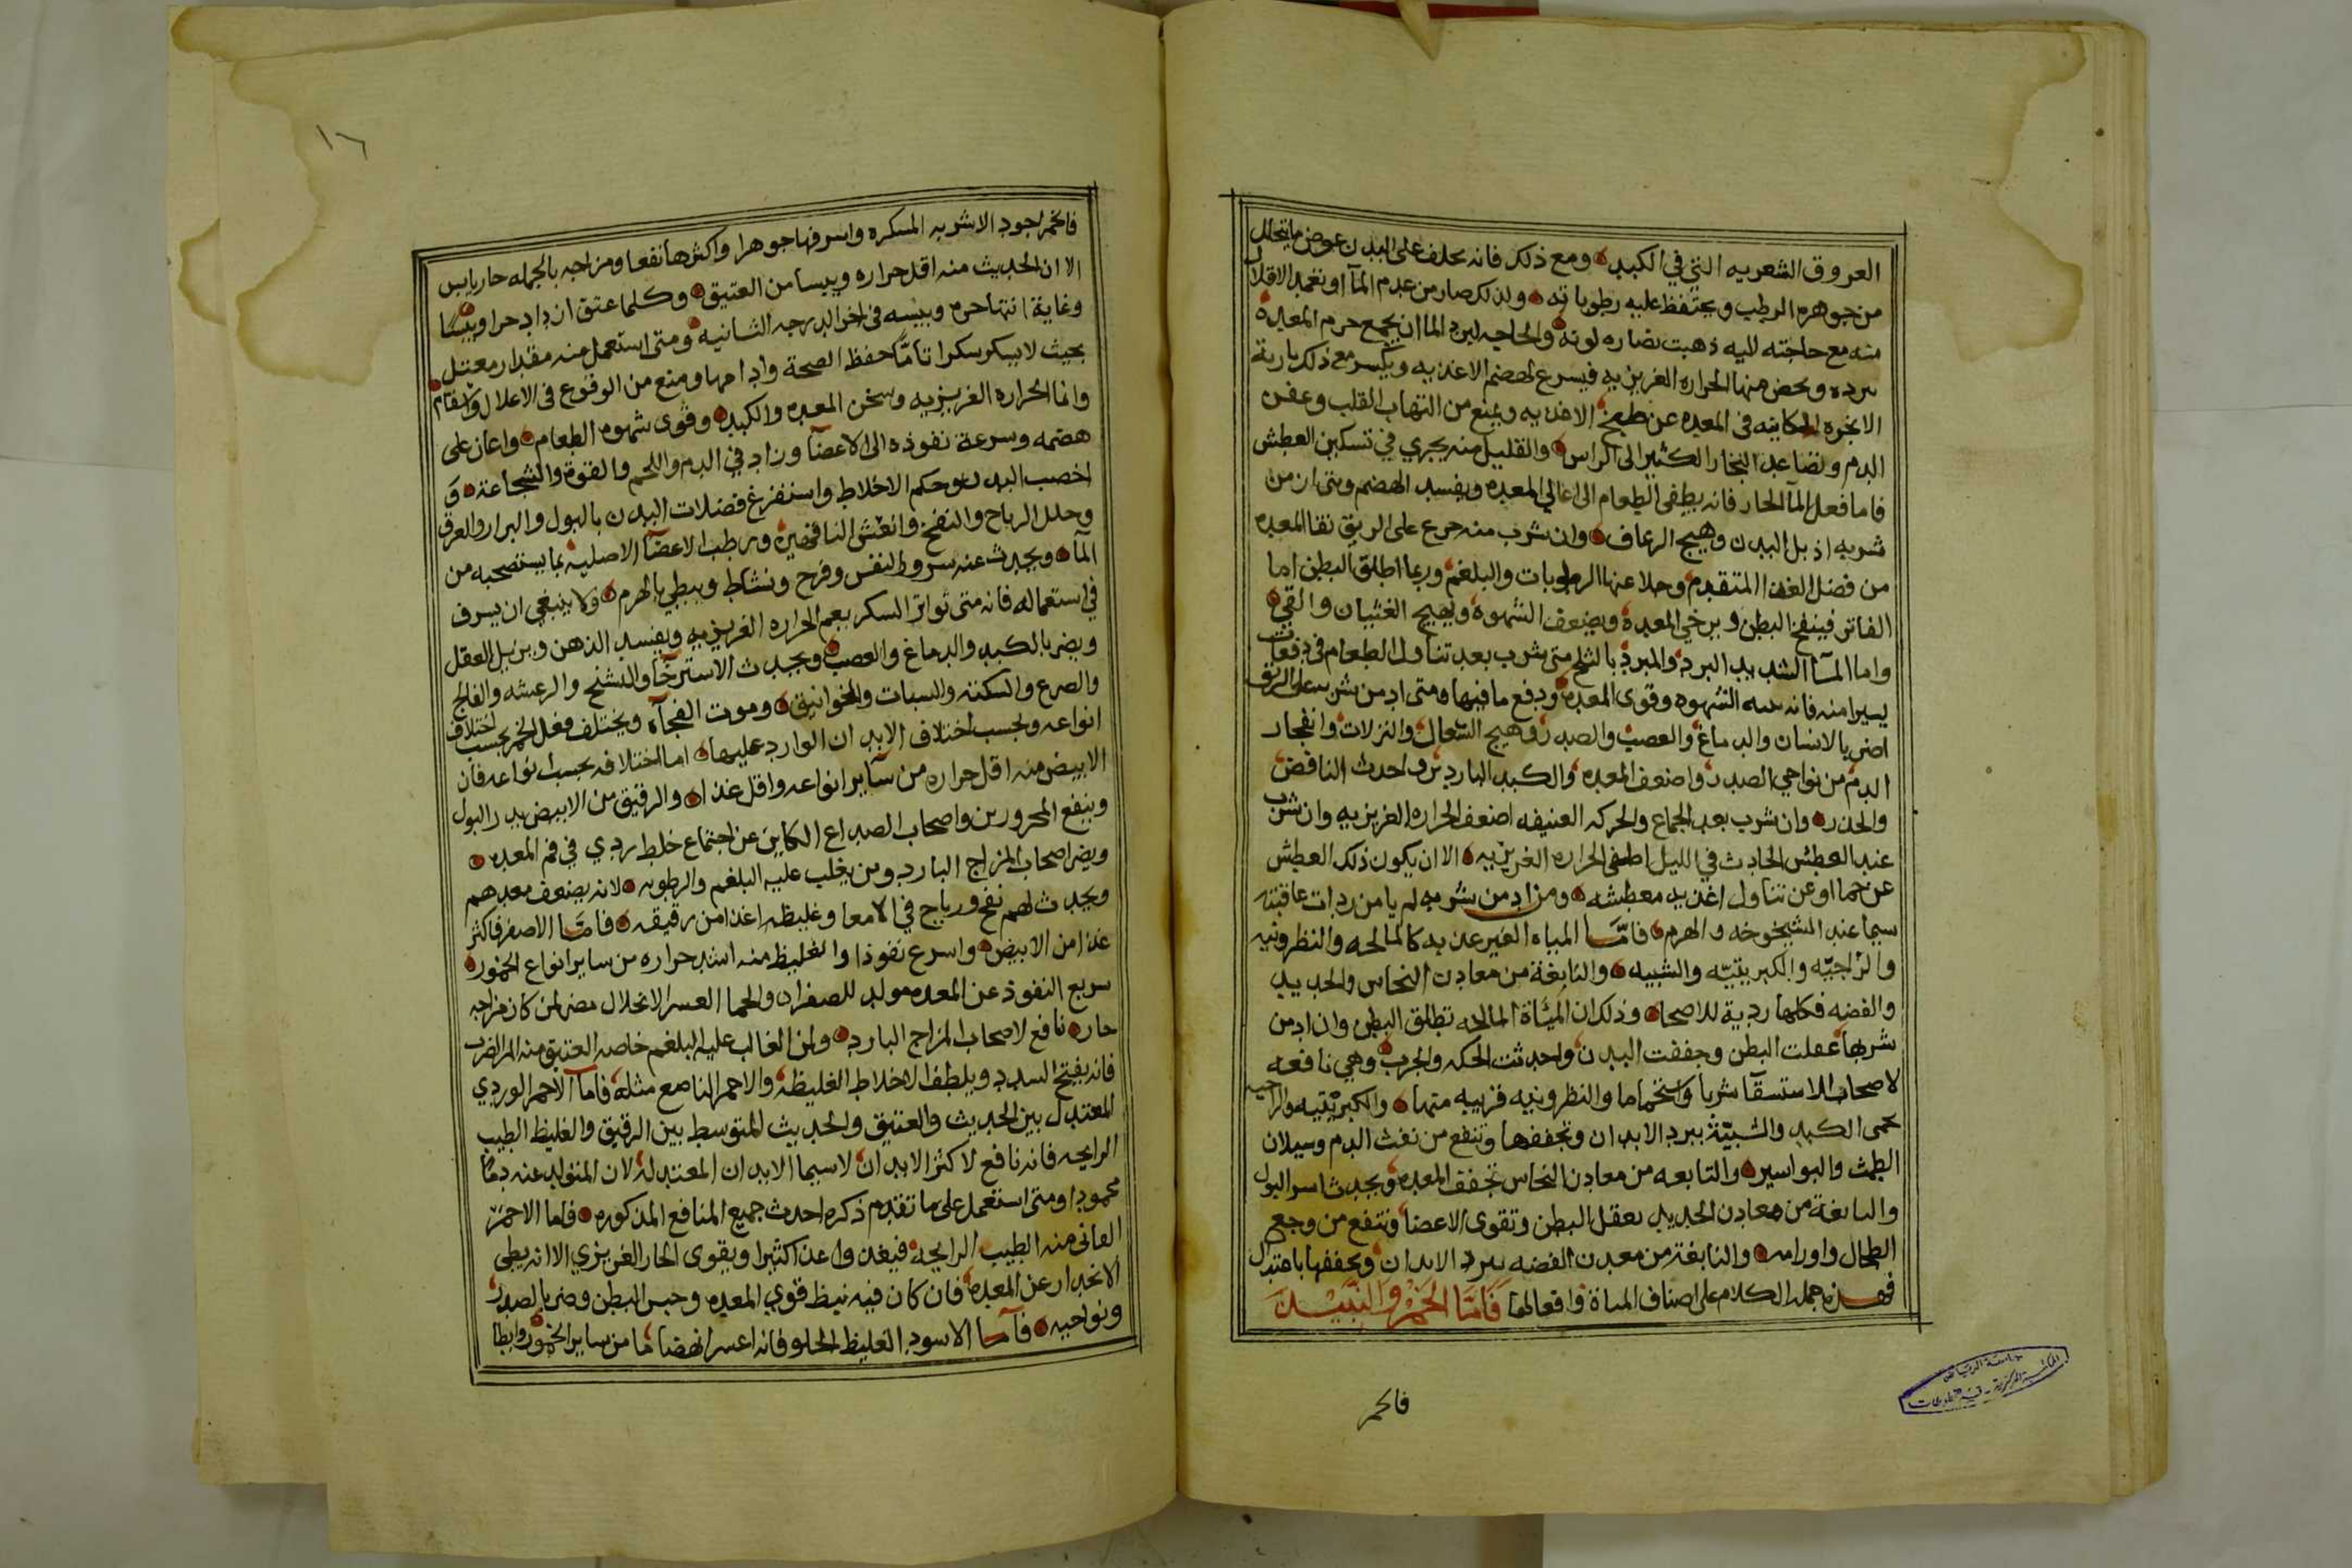 العروق الشعريه التي في الكبد ومع ذلك فانه يخلف على البدن عوض ما يتحلل
من جوهره الرطب ويحتفظ عليه رطوباته ولذلك صار من عدم المآ او تعمد الاقلال
منه مع حاجته اليه ذهبت نضاره لونه والحاجه لبرد الما ان يجمع حرم المعدة
ببرده ويحض منها الحراره الغريزيه فيسرع لهضم الاغذيه ويكسر مع ذلك نارية
الابخره الكاينه في المعده عن طبخ الاغذيه ويمنع من التهاب القلب وعفن
الدم وتصاعد البخار الكثير الى الراس والقليل منه يجري في تسكين العطش
فاما فعل المآ الحار فانه يطفي الطعام الى اعالي المعده ويفسد الهضم ومتى ازمن
شربه اذبل البدن وهيج الرعاف وان شرب منه جرع على الريق نقا المعده
من فضل الغذا المتقدم وجلا عنها الرطوبات والبلغم وربما اطلق البطن اما
الفاتر فينفخ البطن ويرخي المعدة ويضعف الشهوة ويهيج الغثيان والقي
واما المآ الشديد البرد والمبرد بالثلج متى شرب بعد تناول الطعام في دفعات
يسيرا منه فانه ينبه الشهوه وقوى المعده ودفع ما فيها ومتى ادمن شربه على الريق
اضر بالاسنان والدماغ والعصب والصدر وهيج السعال والنزلات وانفجار
الدم من نواحي الصدر واضعف المعده والكبد الباردين واحدث النافض
والخدر وان شرب بعد الجماع والحركه العنيفه اضعف الحراره الغريزيه وان شرب
عند العطش الحادث في الليل اطفى الحراره الغريزيه الا ان يكون ذلك العطش
عن حما او عن تناول اغذيه معطشه ومن ادمن شربه لم يامن ردات عاقبته
سيما عند الشيخوخه والهرم فامّا المياه الغير عذبه كالمالحه والنظرونيه
والزاجيّه والكبريتيّه والشبيه والنابغة من معادن النحاس والحديد
والفضه فكلها ردية للاصحا وذلك ان المياة المالحه تطلق البطن وان ادمن
شربها عقلت البطن وجففت البدن واحدثت الحكه والجرب وهي نافعه
لاصحاب الاستسقآ شربا واستحماما والنظرونيه قريبه منها والكبريتيه والزاجيه
تحمى الكبد والشبيّة تبرد الابدان وتجففها وتنفع من نفث الدم وسيلان
الطمث والبواسير والنابعه من معادن النحاس تجفف المعده ويحدث اسر البول
والنابغة من معادن الحديد تعقل البطن وتقوى الاعضا وتنفع من وجع
الطحال واورامه والنابغة من معدن الفضه تبرد الابدان وتجففها باعتدال
فهذه جملة الكلام على اصناف المياة وافعالها فَامّا الخَمْرُ والنَّبِيْذ
فالخمر
١٦
فالخمر اجود الاشربه المسكره واشرفها جوهرا واكثرها نفعا ومزاجه بالجمله حار يابس
الا ان الحديث منه اقل حراره ويبسا من العتيق وكلما عتق ازداد حرا ويبسا
وغاية انتها حره ويبسه في اخر الدرجه الثانيه ومتى استعمل منه مقدار معتدل
بحيث لا يسكر سكرا تامّا حفظ الصحة وادامها ومنع من الوقوع في الاعلال والاسقام
وانما الحراره الغريزيه وسخن المعده والكبد وقوى شهوه الطعام واعان على
هضمه وسرعة نفوذه الى الاعضآ وزاد في الدم واللحم والقوة والشجاعة و
اخصب البدن وحكم الاخلاط واستفرغ فضلات البدن بالبول والبراز والعرق
وحلل الرياح والنفخ وانعش الناقهين ورطب الاعضآ الاصلية بما يستصحبه من
المآ ويحدث عنه سرور النفس وفرح ونشاط ويبطي بالهرم ولا ينبغي ان يسرف
في استعماله فانه متى تواتر السكر يغمر الحراره الغريزيه ويفسد الذهن ويزيل العقل
ويضر بالكبد والدماغ والعصب ويحدث الاسترخآ والتشنج والرعشه والفالج
والصرع والسكته والسبات والخوانيق وموت الفجآه ويختلف فعل الخمر بحسب اختلاف
انواعه وبحسب اختلاف الابدان الوارد عليها اما اختلافه بحسب انواعه فان
الابيض منه اقل حراره من ساير انواعه واقل غذا والرقيق من الابيض يدر البول
وينفع المحرورين واصحاب الصداع الكاين عن اجتماع خلط ردي في فم المعده
ويضر اصحاب المزاج البارد ومن يغلب عليه البلغم والرطوبه لانه يضعف معدهم
ويحدث لهم نفخ ورياح في الامعا وغليظه اغذا من رقيقه فامّا الاصفر فاكثر
غذا من الابيض واسرع نفوذا والغليظ منه اشد حراره من ساير انواع الخمور
سريع النفوذ عن المعده مولد للصفرا والحما العسر الانحلال مضر لمن كان مزاجه
حار نافع لاصحاب المزاج البارد ولمن الغالب عليه البلغم خاصه العتيق منه المر الضرب
فانه يفتح السدد ويلطف الاخلاط الغليظة والاحمر الناصع مثله فامآ الاحمر الوردي
المعتدل بين الحديث والعتيق والحديث المتوسط بين الرقيق والغليظ الطيب
الرايحه فانه نافع لاكثر الابدان لاسيما الابدان المعتدلة لان المتولد عنه دما
محمودا ومتى استعمل على ما تقدم ذكره احدث جميع المنافع المذكوره فاما الاحمر
القاني منه الطيب الرايحه فيغذوا غذا كثيرا ويقوى الحار الغريزي الا انه يطي
الانحدار عن المعده فان كان فيه قوي المعده وحبس البطن وضر بالصدر
ونواحيه فآما الاسود الغليظ الحلو فانه اعسر انهضاما من ساير الخمور وابطا
جامعة الرياض
المكتبة المركزية - قسم المخطوطات